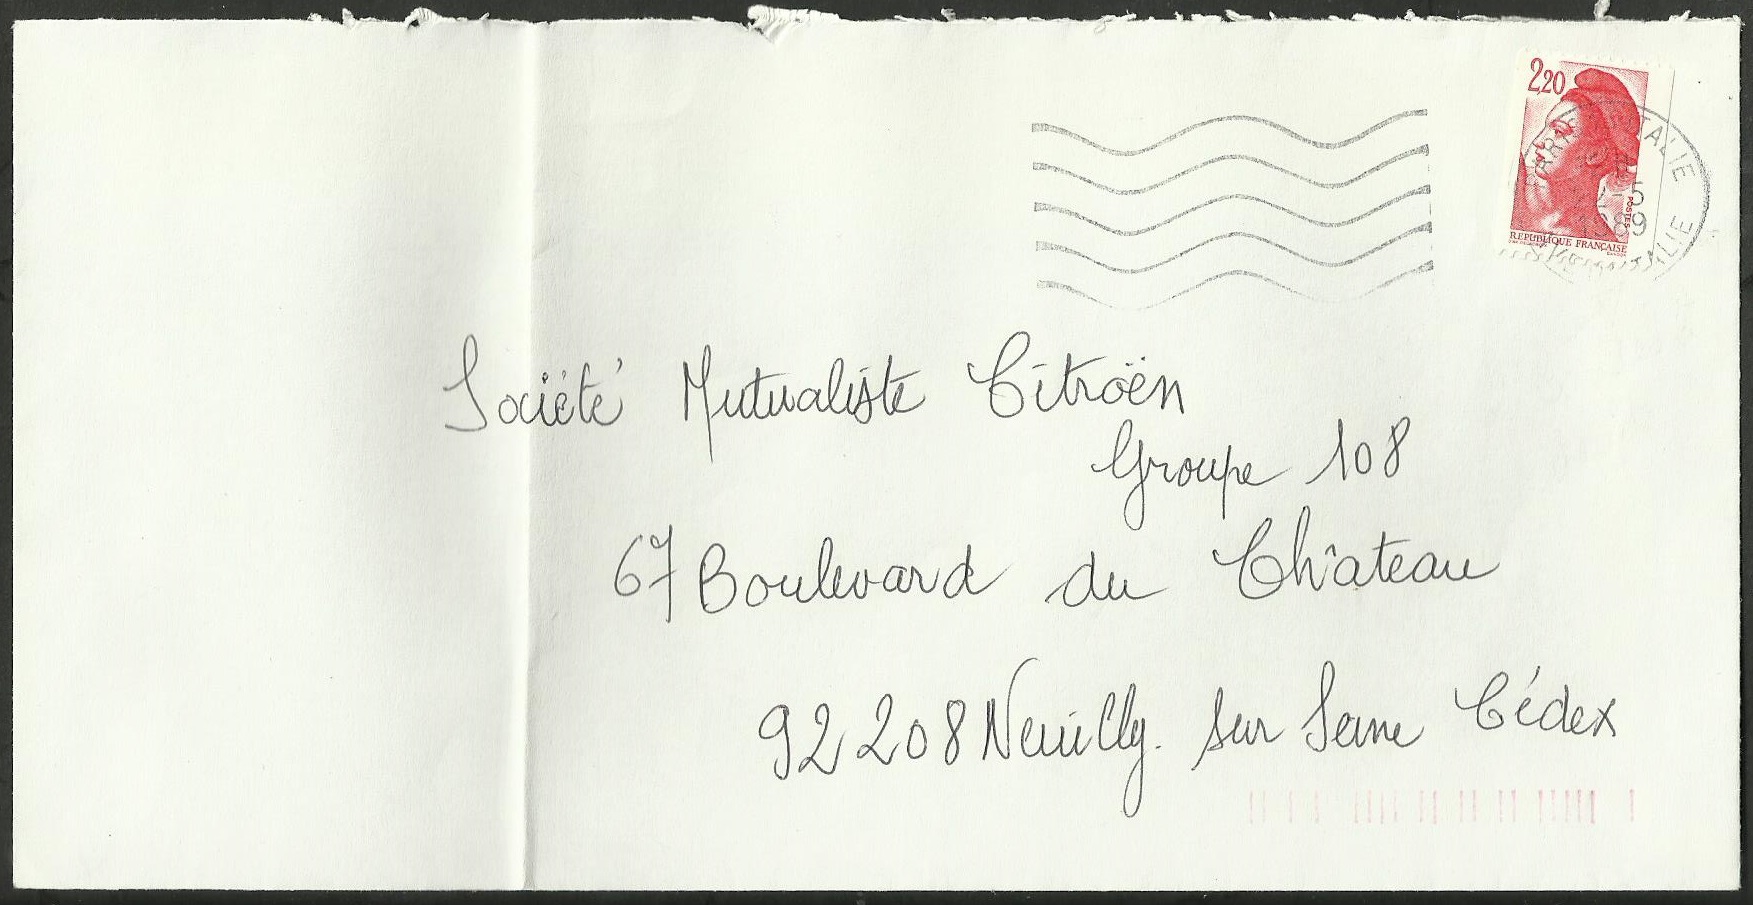 2,20
POSTES
REPUBLIQUE FRANÇAISE
22-5
1989
Société Mutualiste Citroën
Groupe 108
67 Boulevard du Château
92208 Neuilly sur Seine Cédex